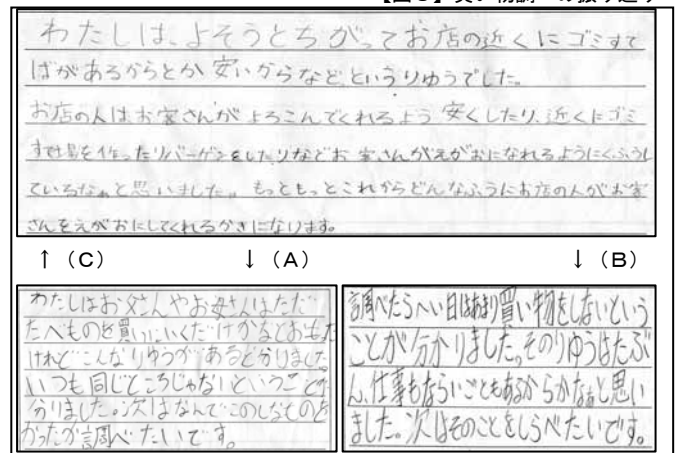 わたしは、よそうとちがってお店の近くにゴミすて
ばがあるからとか安いからなどというりゆうでした。
お店の人はお客さんがよろこんでくれるよう安くしたり、近くにゴミ
すて場を作ったりバーゲンをしたりなどお客さんがえがおになれるようにくふうし
ているなぁと思いました。もっともっとこれからどんなふうにお店の人がお客
さんをえがおにしてくれるかきになります。
↑（C） ↓（A） ↓（B）
わたしはお父さんやお母さんはただ
たべものを買いにいくだけかなとおもた
けれどこんなりゆうがあるとかりました
いつも同じところじゃないということが
分りました。次はなんでこのしなものを
かったか調べたいです。
調べたらへい日はあまり買い物をしないという
ことが分かりました。そのりゆうはたぶ
ん、仕事もならいごともあるからかなぁと思い
ました。次はそのことをしらべたいです。